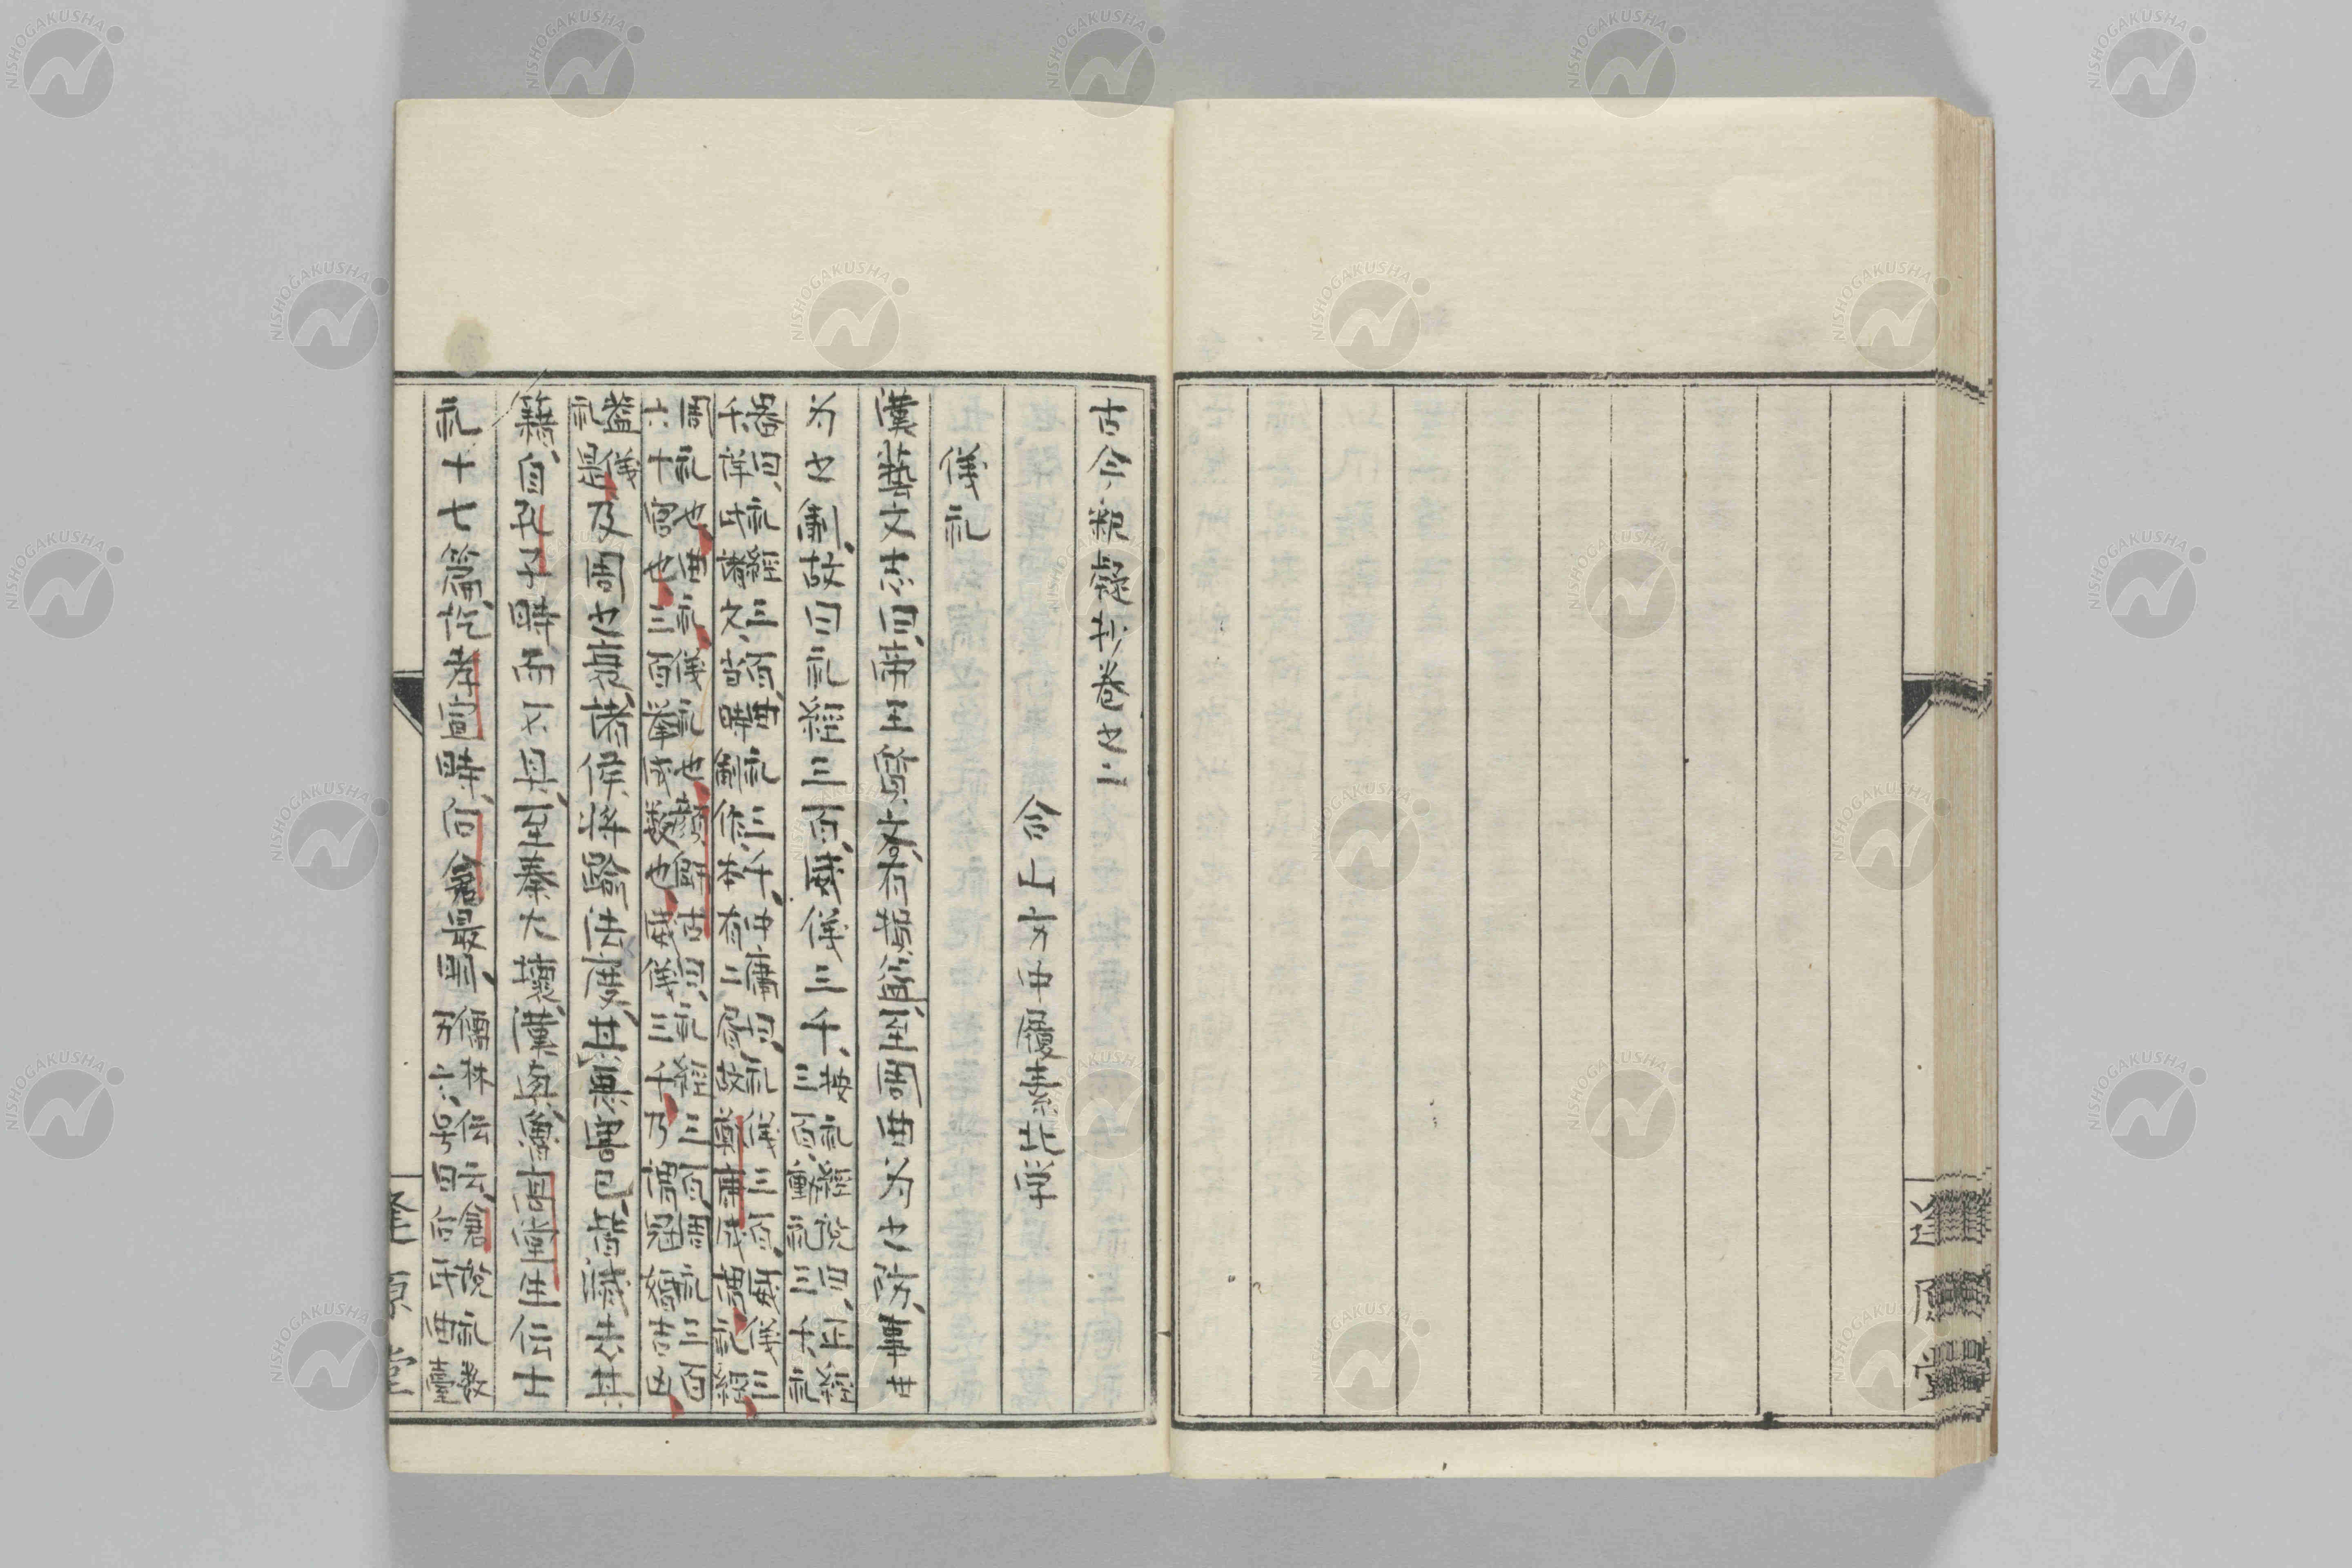 古今釈疑抄巻之二
合山文中履素北学
儀礼
漢藝文志曰、帝王質文、有損益、至周曲為之防、事
為之制、故曰礼経三百、威儀三千、
按礼経説曰、正経三百、動礼三千、礼
器曰、礼経三百、曲礼三千、中庸曰、礼儀三百、威儀三
千、詳氏諸文、当時制作、本有二層、故、康成謂礼経
周礼也、曲礼儀礼也、顔師古曰、礼経三百、周礼三百
六十官也、三百挙成数也、威儀三千、乃謂冠婚吉凶
蓋儀礼是
及周之衰、諸侯将踰法度、其害己、皆滅去其
籍、自孔子時、而不具、至秦大壊、漢興、魯高堂生伝士
礼十七篇、訖孝宣時、后倉最明、
儒林伝云、倉説礼数
万言、号曰后氏曲臺
逢原堂
NISHOGAKUSHA